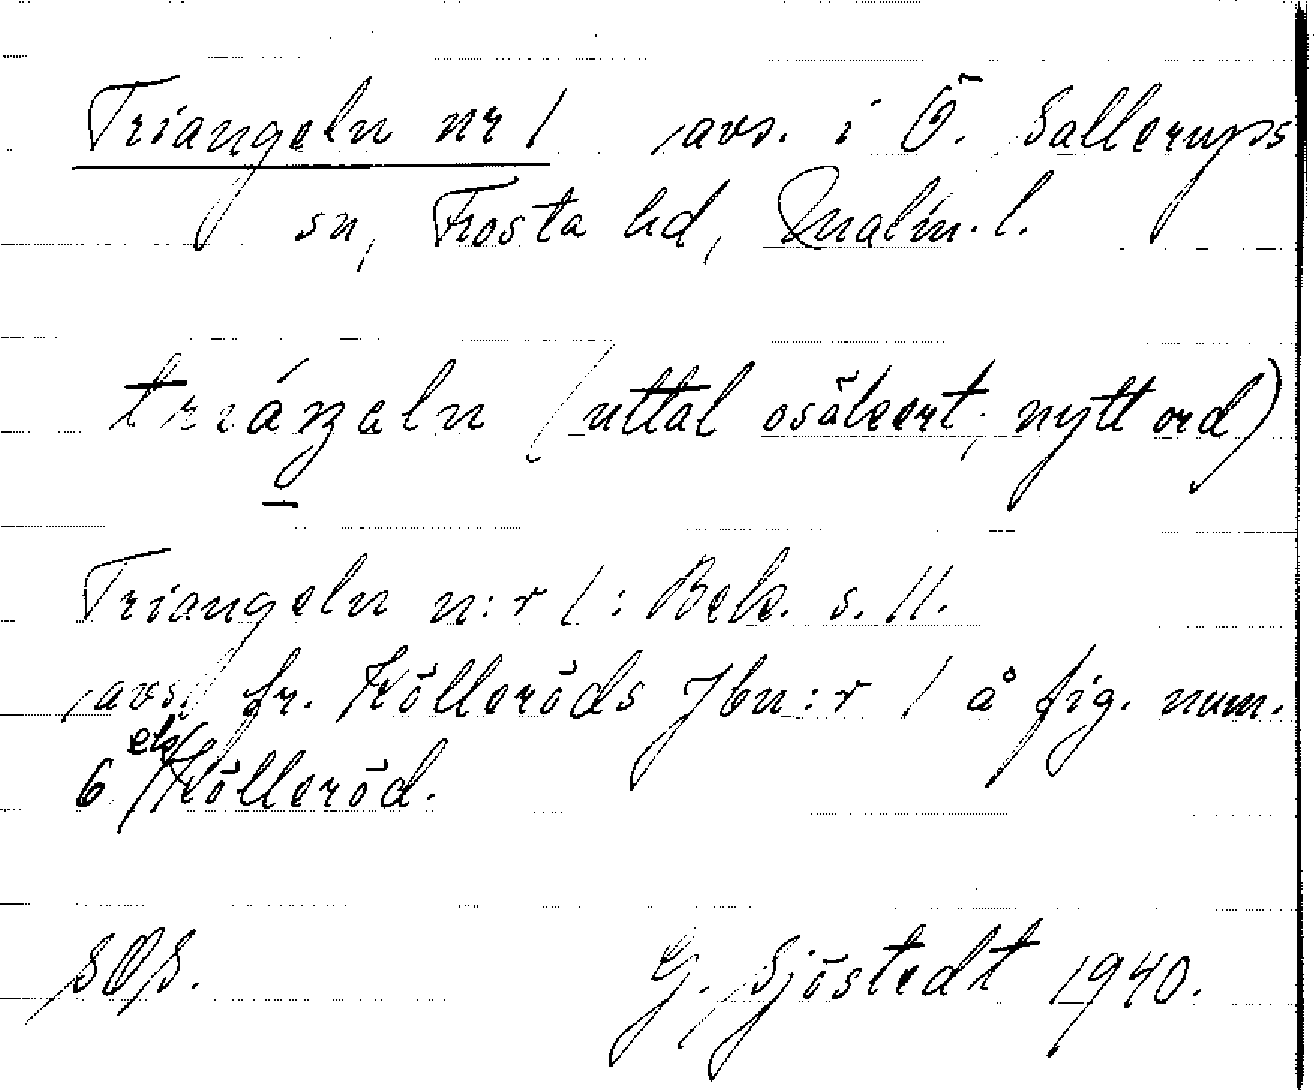 Triangeln nr 1 avs. i Ö. Sallerups
sn, Frosta hd, Malm. l.
triáŋeln (uttal osäkert; nytt ord)
Triangeln n:r 1: Bek. s. 11.
avs. fr. Kölleröds Jbn:r 1 å fig. num.
6 etc/Kölleröd.
G. Sjöstedt 1940.